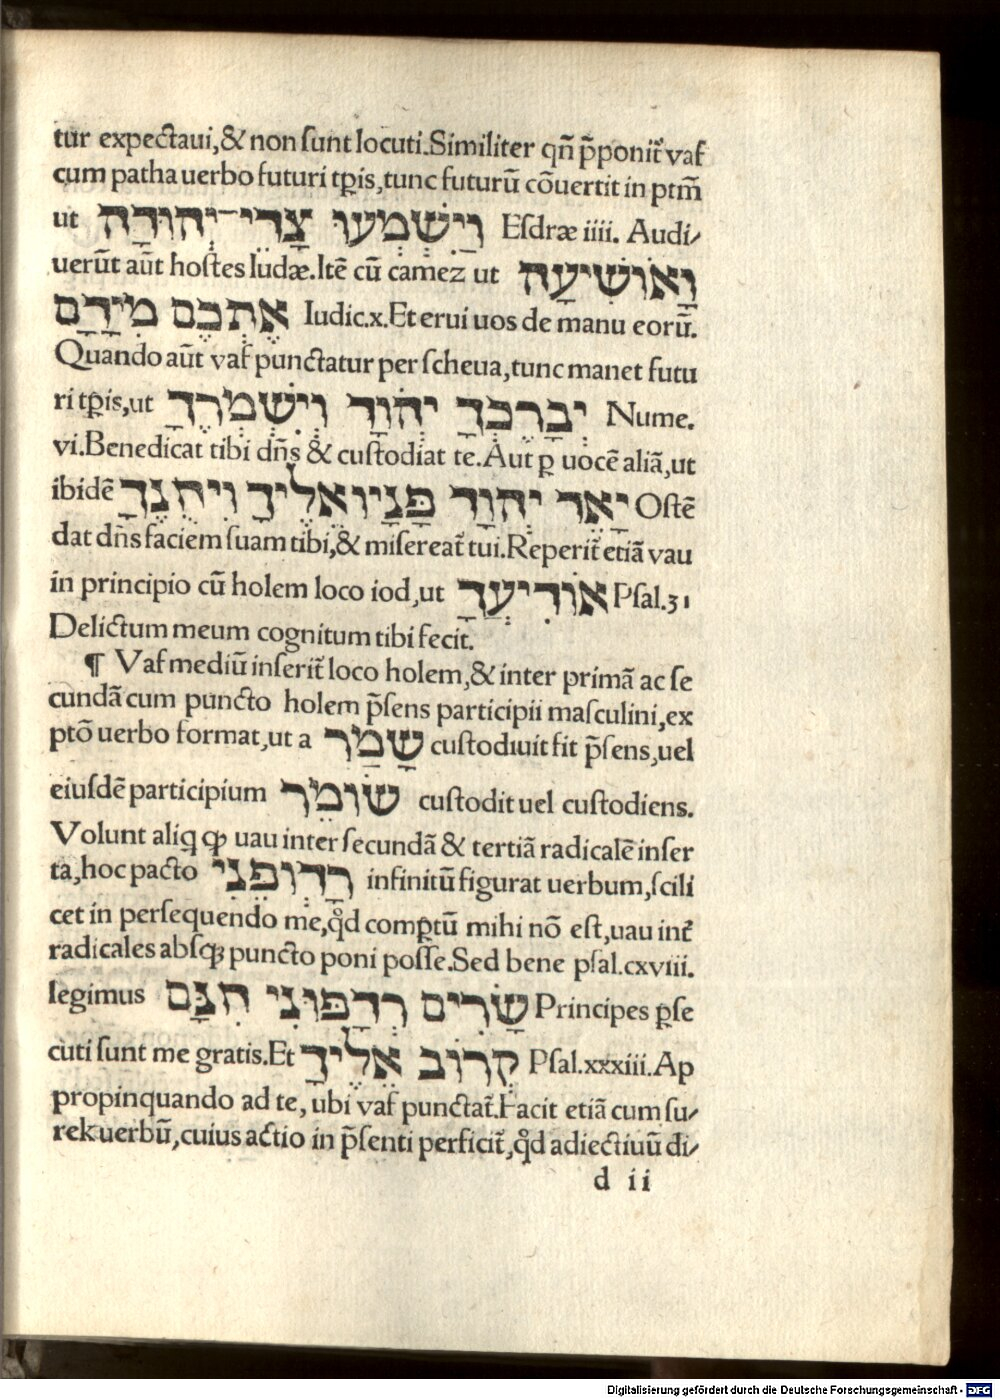 tur expectaui,& non ſunt locuti.Similiter qn̄ p̄ponit᷑ vaf
cum patha uerbo futuri tꝑis,tunc futurū cōuertit in ptm̄
ut וַיִּשְׁמְעוּ צָרֵי־יְהוּדָה Eſdræ iiii. Audi⸗
uerūt aūt hoſtes Iudæ.Itē cū camez ut וָאוֹשִׁיעָה
אֶתְכֶם מִיָּדָם Iudic.x.Et erui uos de manu eorū.
Quando aūt vaf punctatur per ſcheua,tunc manet futu
ri tꝑis,ut יְבָרֶכְךָ יְהוָֹד וְיִשְׁמְרֶךָ Nume.
vi.Benedicat tibi dn̄s & cuſtodiat te.Aut ꝑ uocē aliā,ut
ibidē יָאֵר יְהוָד פָּנָיו אֵלֶיךָ וִיחֻנֶּךָ Oſtē
dat dn̄s faciem ſuam tibi,& miſereat᷑ tui.Reperit᷑ etiā vau
in principio cū holem loco iod,ut אוֹדִיעֲךָ Pſal.31
Delictum meum cognitum tibi fecit.
¶ Vaf mediū inſerit᷑ loco holem,& inter primā ac ſe
cundā cum puncto holem p̄ſens participii maſculini,ex
ptō uerbo format,ut a שָׁמַר cuſtodiuit fit p̄ſens,uel
eiuſdē participium שׁוֹמֵר cuſtodit uel cuſtodiens.
Volunt aliq ꝙ uau inter ſecundā & tertiā radicalē inſer
ta,hoc pacto רָדְוֹפֵנִי infinitū figurat uerbum,ſcili
cet in perſequendo me,qd̓ comꝑtū mihi nō eſt,uau int᷑
radicales abſqꝫ puncto poni poſſe.Sed bene pſal.cxviii.
legimus שָׂרִים רְדָפוּנִי חִנָּם Principes ꝑſe
cuti ſunt me gratis.Et קְרוֹב אֵלֶיךָ Pſal.xxxiii.Ap
propinquando ad te, ubi vaf punctat᷑.Facit etiā cum ſu⸗
rek uerbū,cuius actio in p̄ſenti perficit᷑,qd̓ adiectiuū di⸗
d ii
Digitalisierung gefördert durch die Deutsche Forschungsgemeinschaft - DFG